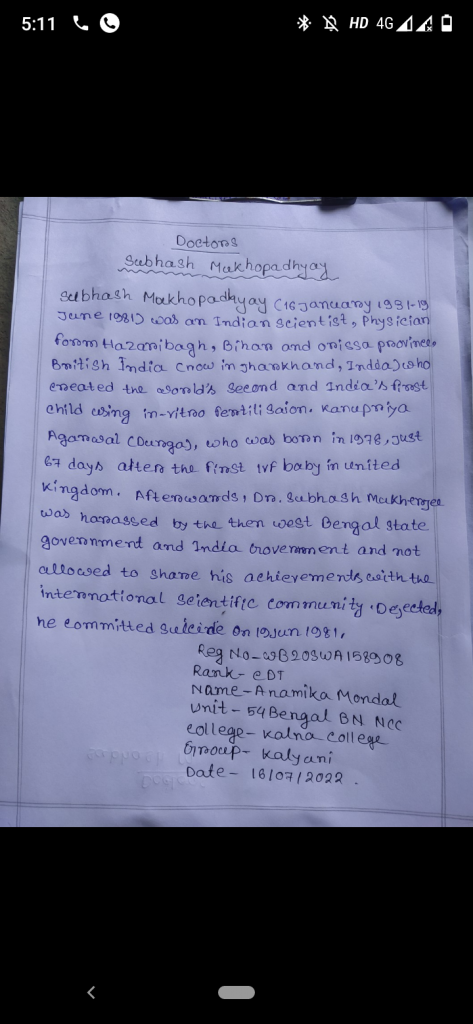 5:11 HD 4G
Doctors
Subhash Mukhopadhyay
Subhash Mukhopadhyay (16 January 1931-19
June 1981) was an Indian scientist, Physician
form Hazaribagh, Bihar and orissa province,
British India (now in Jharkhand, India) who
created the world's second and India's first
child using in-vitro fertilisaion. Kanupriya
Agarwal (Durga), who was born in 1978, just
67 days after the first IVF baby in united
Kingdom. Afterwards, Dr. Subhash Mukherjee
was harrassed by the then west Bengal state
government and India Government and not
allowed to share his achievements with the
international Scientific community. Dejected,
he committed suicide on 19 Jun 1981.
Reg No-WB20SWA158908
Rank- CDT
Name-Anamika Mondal
Unit- 54 Bengal BN NCC
College- Kalna College
Group- Kalyani
Date- 16/07/2022.